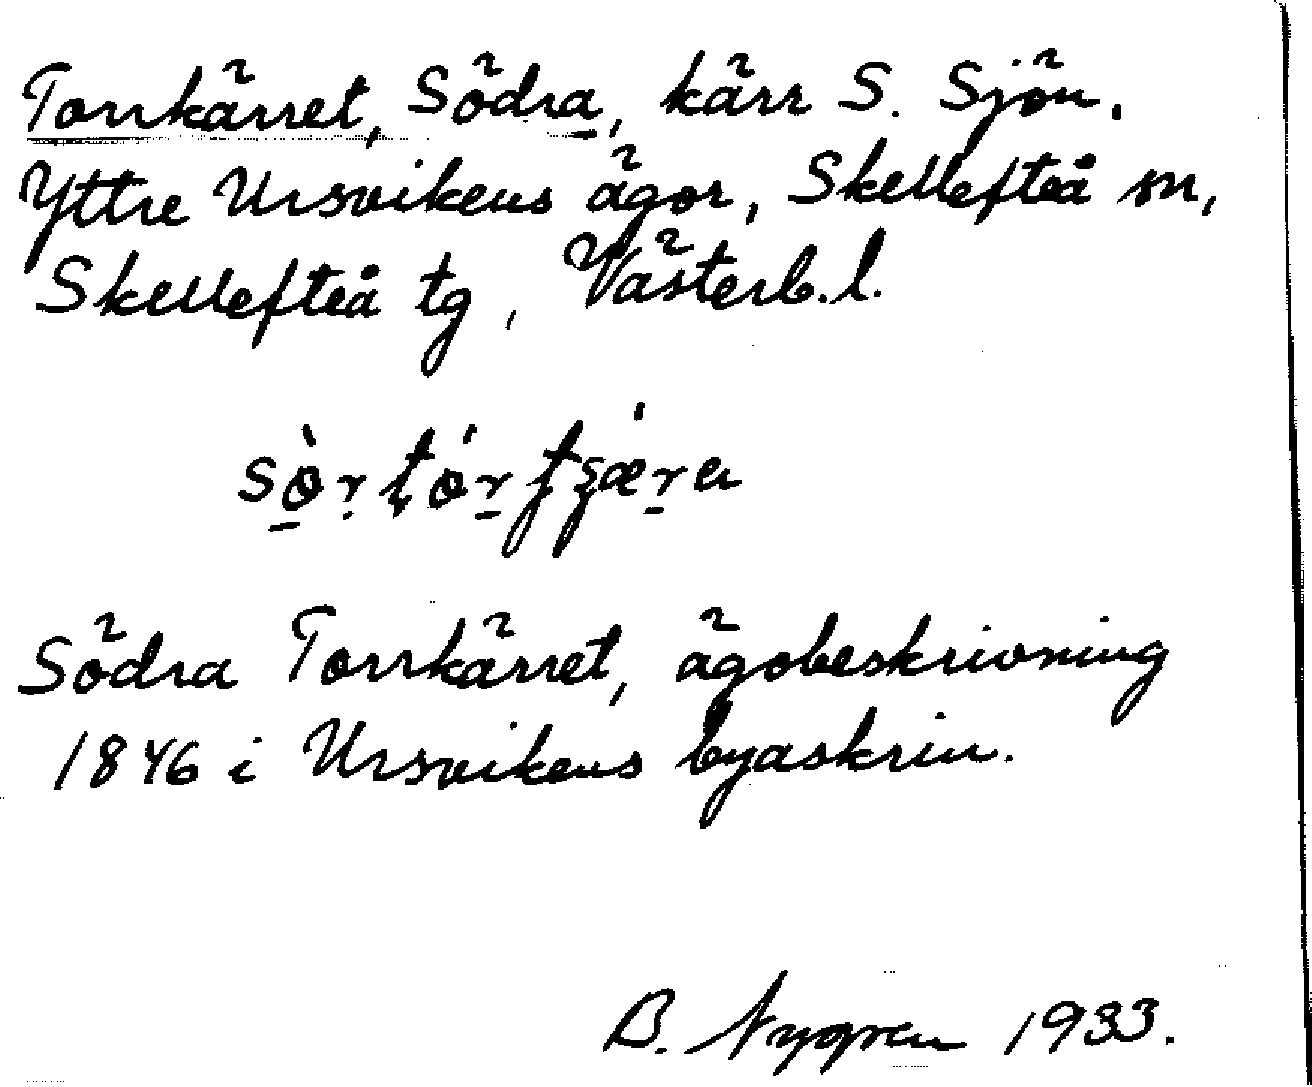 Torrkärret, Södra, kärr S. Sjön.
Yttre Ursvikens ägor, Skellefteå sn,
Skellefteå tg, Västerb. l.
Södra Torrkärret, ägobeskrivning
1846 i Ursvikens byaskrin.
B. Nygren 1933.